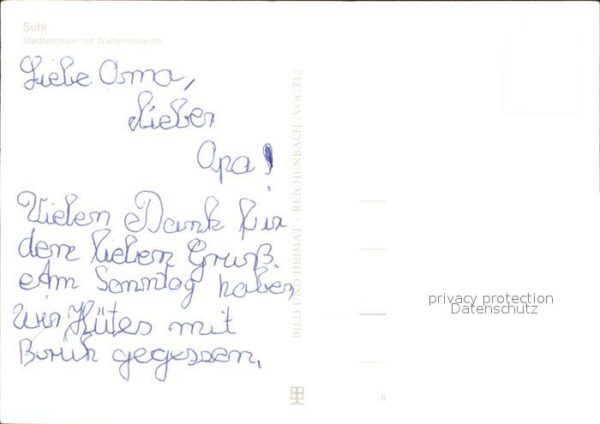 Suhl
Stadtzentrum mit Waffenmuseum
Liebe Oma,
lieber
Opa!
Vielen Dank für
den lieben Gruß.
Am Sonntag haben
wir Hütes mit
gegessen.
BILD UND HEIMAT · REICHENBACH (VOGTL)
privacy protection
Datenschutz